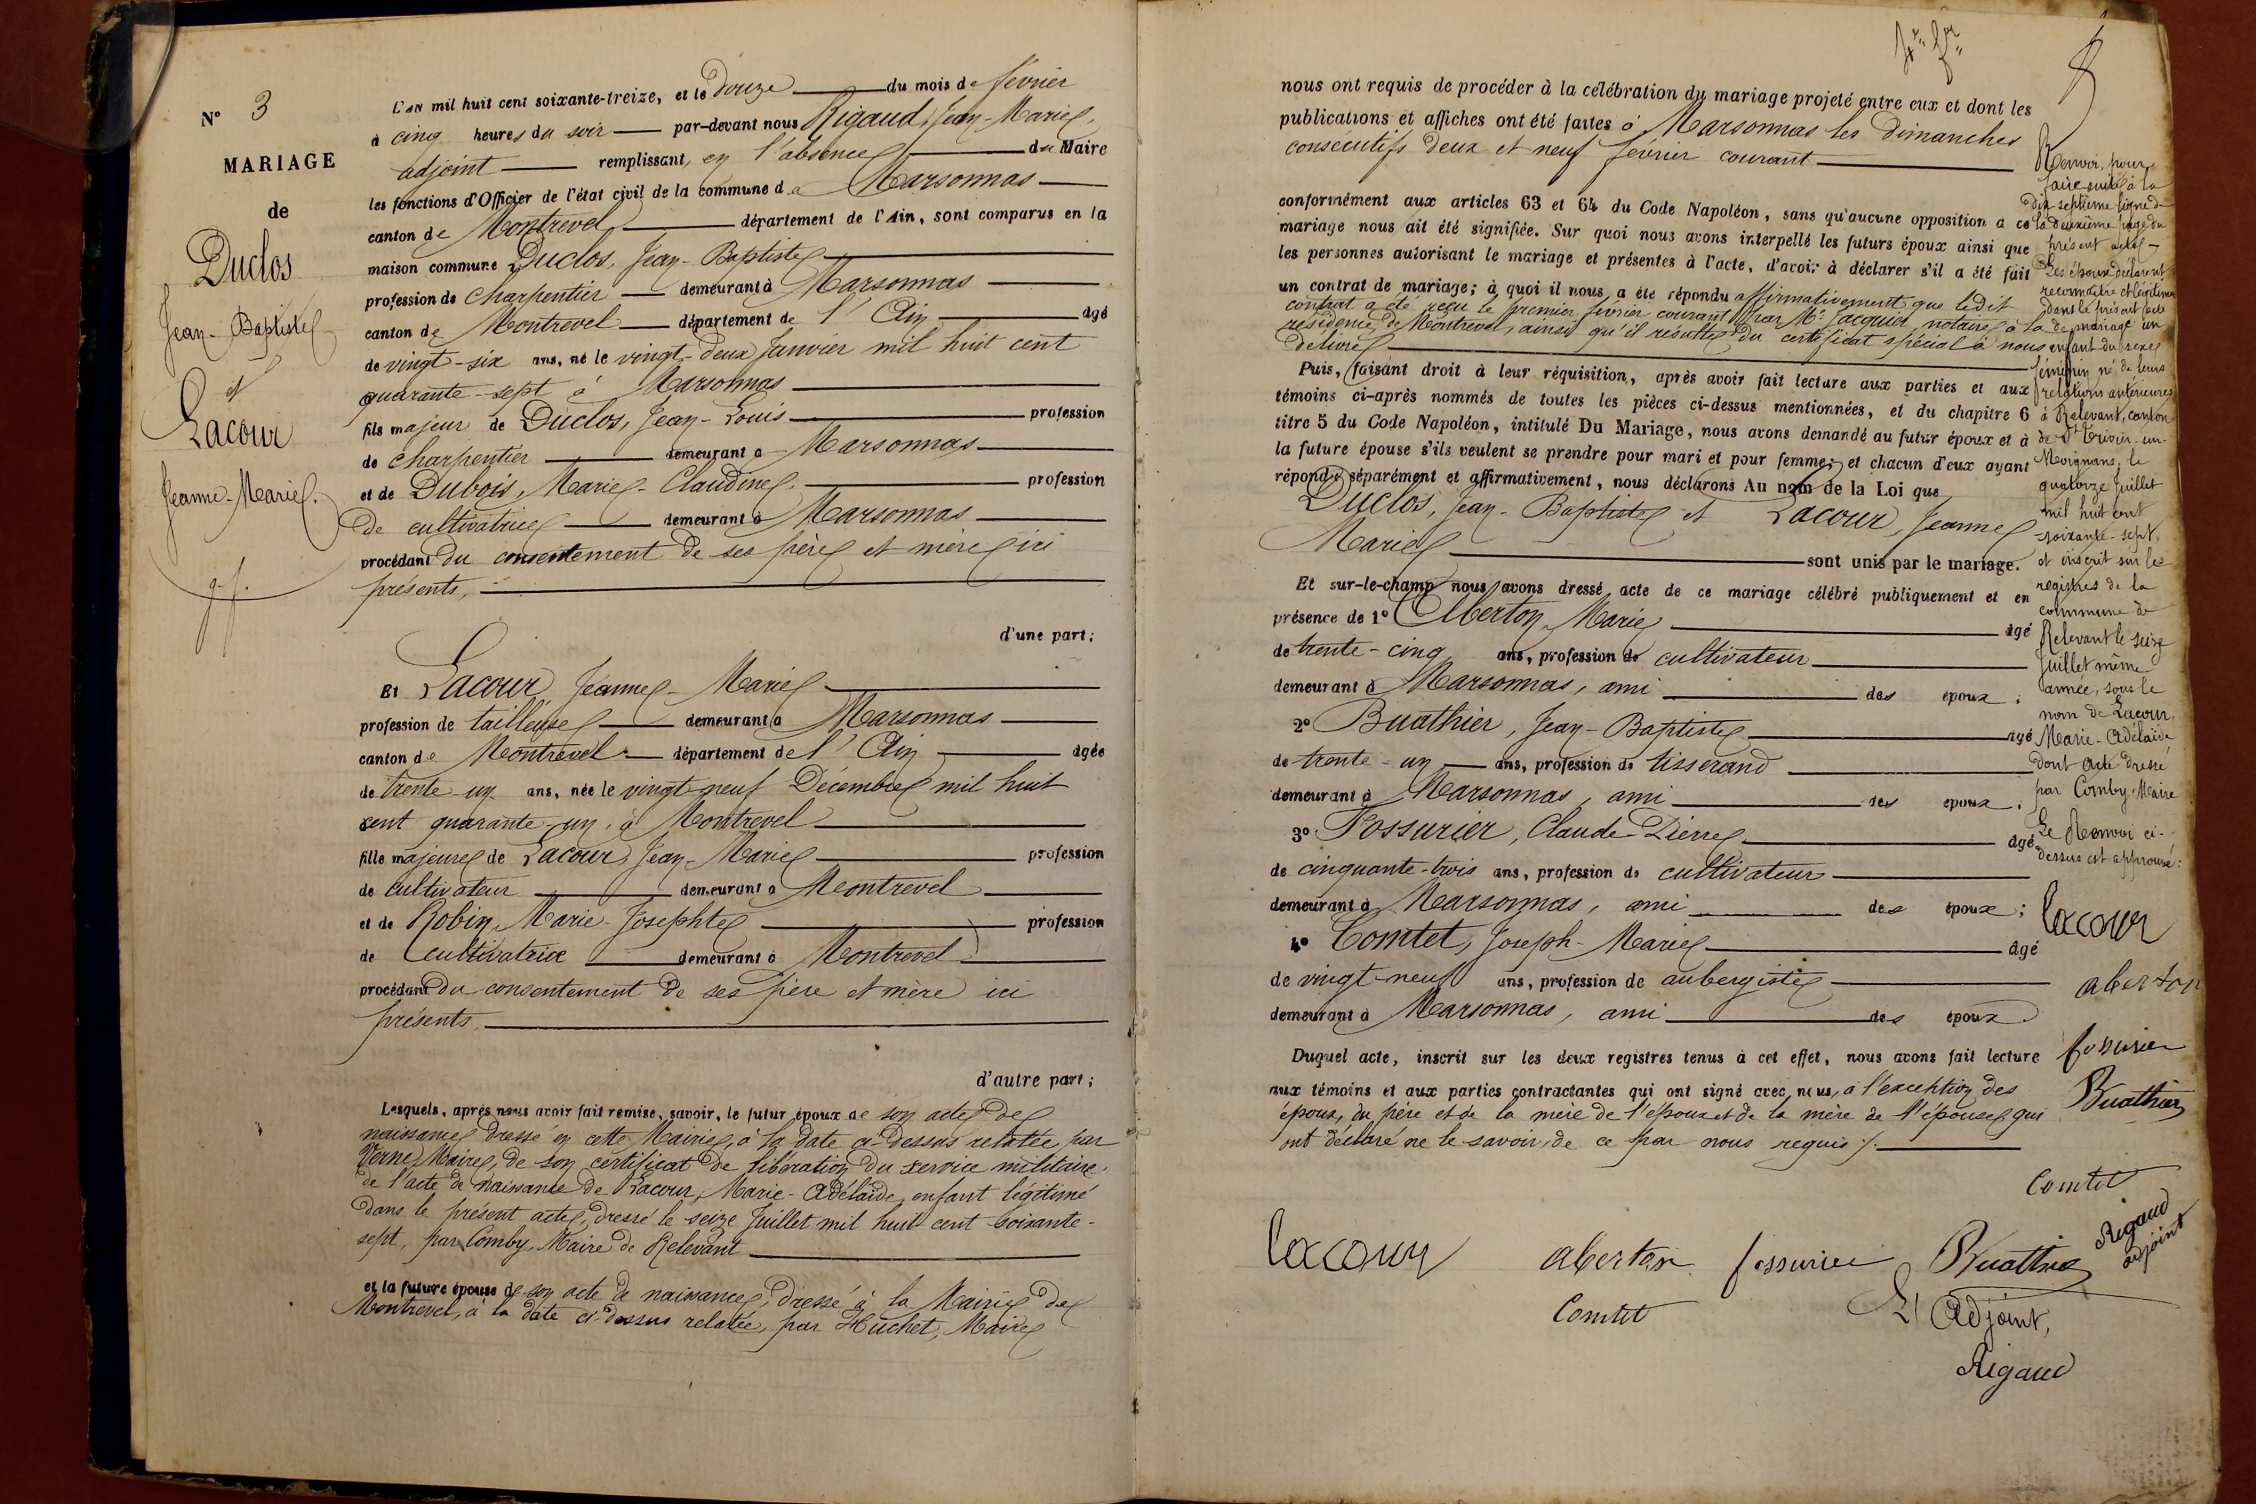 N° 3
MARIAGE
de
Duclos
Jean-Baptiste
et
Lacour
Jeanne-Marie.
L'an mil huit cent soixante-treize, et le douze du mois de février
à cinq heures du soir par-devant nous Rigaud, Jean-Marie,
adjoint remplissant, en l'absence du Maire
les fonctions d'Officier de l'état civil de la commune de Marsonnas
canton de Montrevel département de l'Ain, sont comparus en la
maison commune Duclos, Jean-Baptiste
profession de charpentier demeurant à Marsonnas
canton de Montrevel département de l'Ain âgé
de vingt-six ans, né le vingt-deux Janvier mil huit cent
quarante-sept à Marsonnas
fils majeur de Duclos, Jean-Louis profession
de charpentier demeurant à Marsonnas
et de Dubois, Marie-Claudine profession
de cultivatrice demeurant à Marsonnas
procédant du consentement de ses père et mère ici
présents,
d'une part;
Et Lacour, Jeanne-Marie
profession de tailleuse demeurant à Marsonnas
canton de Montrevel département de l'Ain âgée
de trente-un ans, née le vingt-neuf Décembre mil huit
cent quarante-un, à Montrevel
fille majeure de Lacour, Jean-Marie profession
de cultivateur demeurant à Montrevel
et de Robin, Marie-Josephte profession
de cultivatrice demeurant à Montrevel
procédant du consentement de ses père et mère ici
présents
d'autre part;
Lesquels, après nous avoir fait remise, savoir, le futur époux de son acte de
naissance dressé en cette Mairie, à la date ci-dessus relatée, par
Verne, Maire, de son certificat de libération du service militaire,
de l'acte de naissance de Lacour, Marie-Adélaïde, enfant légitimé
dans le présent acte, dressé le seize Juillet mil huit cent soixante-
sept, par Comby, Maire de Relevant
et la future épouse de son acte de naissance, dressé à la Mairie de
Montrevel, à la date ci-dessus relatée, par Huchet, Maire
nous ont requis de procéder à la célébration du mariage projeté entre eux et dont les
publications et affiches ont été faites à Marsonnas les dimanches
consécutifs deux et neuf février courant
conformément aux articles 63 et 64 du Code Napoléon, sans qu'aucune opposition a ce
mariage nous ait été signifiée. Sur quoi nous avons interpellé les futurs époux ainsi que
les personnes autorisant le mariage et présentes à l'acte, d'avoir à déclarer s'il a été fait
un contrat de mariage; à quoi il nous a été répondu affirmativement que ledit
contrat a été reçu le premier février courant par Me Jacquier, notaire à la
résidence de Montrevel, ainsi qu'il résulte du certificat spécial à nous
délivré
Puis, faisant droit à leur réquisition, après avoir fait lecture aux parties et aux
témoins ci-après nommés de toutes les pièces ci-dessus mentionnées, et du chapitre 6
titre 5 du Code Napoléon, intitulé Du Mariage, nous avons demandé au futur époux et à
la future épouse s'ils veulent se prendre pour mari et pour femme; et chacun d'eux ayant
répondu séparément et affirmativement, nous déclarons Au nom de la Loi que
Duclos, Jean-Baptiste et Lacour, Jeanne
Marie sont unis par le mariage.
Et sur-le-champ nous avons dressé acte de ce mariage célébré publiquement et en
présence de 1° Alberton, Marie âgé
de trente-cinq ans, profession de cultivateur
demeurant à Marsonnas, ami des époux;
2° Buathier, Jean-Baptiste âgé
de trente-un ans, profession de tisserand
demeurant à Marsonnas, ami des époux.
3° Fossurier, Claude-Pierre âgé
de cinquante-trois ans, profession de cultivateur
demeurant à Marsonnas, ami des époux;
4° Comtet, Joseph-Marie âgé
de vingt-neuf ans, profession de aubergiste
demeurant à Marsonnas, ami des époux
Duquel acte, inscrit sur les deux registres tenus à cet effet, nous avons fait lecture
aux témoins et aux parties contractantes qui ont signé avec nous, à l'exception des
époux, du père et de la mère de l'époux et de la mère de l'épouse, qui
ont déclaré ne le savoir, de ce par nous requis
lacour aberton fossurier Buathier
Comtet L'Adjoint,
Rigaud
Renvoi, pour
faire suite à la
dix septième ligne de
la deuxième page du
présent acte
Les époux déclarent
reconnaître et légitimer
dans le présent acte
de mariage un
enfant du sexe
féminin né de leurs
relations antérieures
à Relevant, canton
de St Trivier-sur-
Moignans, le
quatorze Juillet
mil huit cent
soixante-sept,
et inscrit sur les
registres de la
commune de
Relevant le seize
Juillet même
année, sous le
nom de Lacour,
Marie-Adélaïde
dont acte dressé
par Comby, Maire
Le Renvoi ci-
dessus est approuvé:
lacour
aberton
fossurier
Buathier
Comtet
Rigaud
adjoint